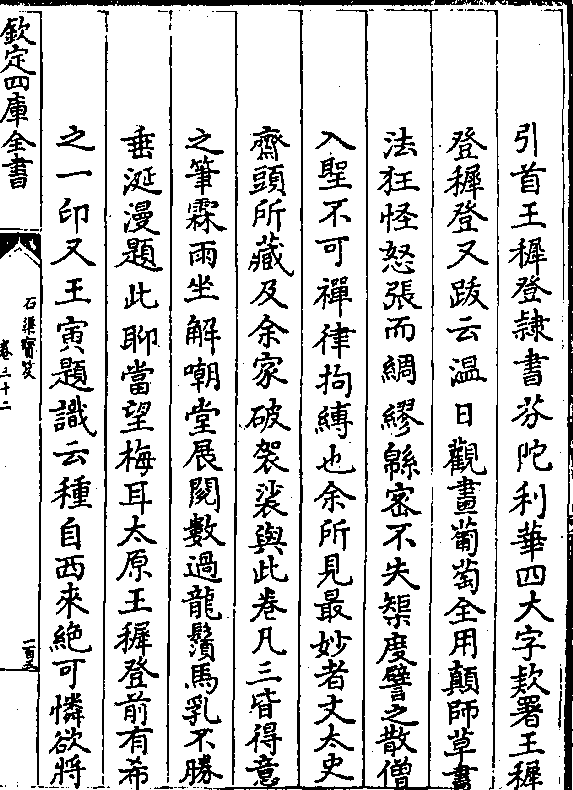 引首王穉登隷書芬陀利華四大字欵署王穉
登穉登又跋云温日觀畫葡萄全用顛師草書
法狂怪怒張而綢繆緜密不失榘度譬之散僧
入聖不可禪律拘縛也余所見最妙者文太史
齋頭所藏及余家破袈裟與此卷凡三皆得意
之筆霖雨坐解嘲堂展閲數過龍鬚馬乳不勝
垂涎漫題此聊當望梅耳太原王穉登前有希
之一印又王寅題識云種自西來絶可憐欲將
欽定四庫全書
石渠寳笈
卷三十二